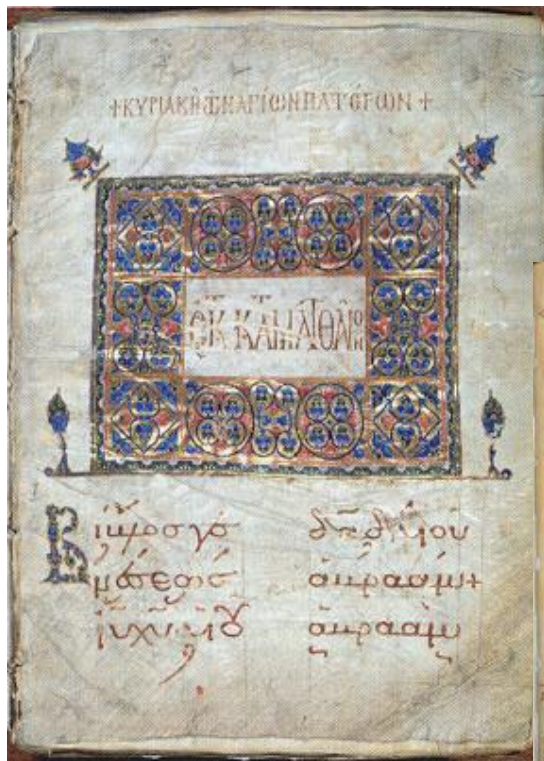 +ΚΥΡΙΑΚΗ ΤΩΝ ΑΓΙΩΝ ΠΑΤΕΡΩΝ+
ΕΚ Τ ΚΑΤ ΜΑΤΘΑΙΟΝ
Βίβλος γε
νέσεως
ἰῦ χῦ υἱοῦ
δᾱδ υἱοῦ
ἀβραάμ+
ἀβραὰμ